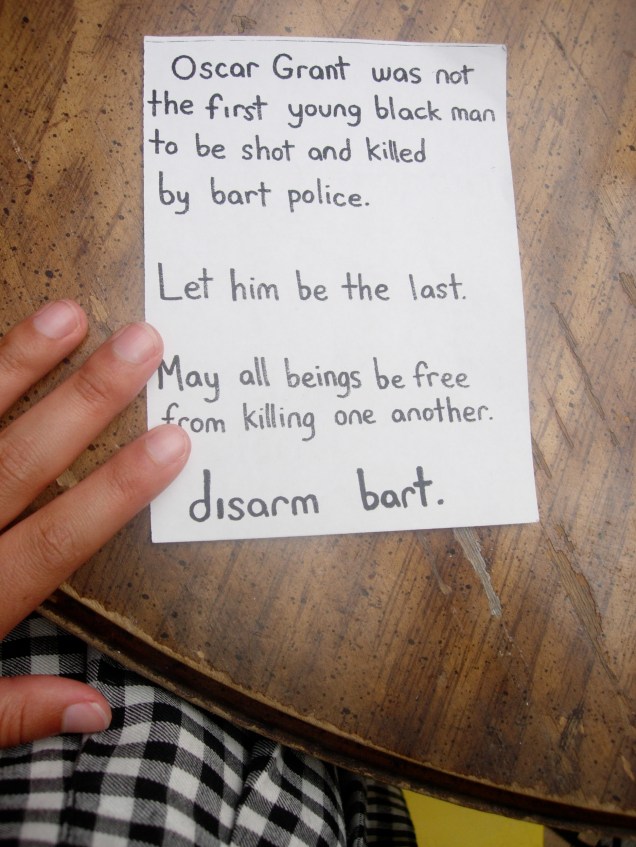 Oscar Grant was not
the first young black man
to be shot and killed
by bart police.
Let him be the last.
May all beings be free
from killing one another.
disarm bart.